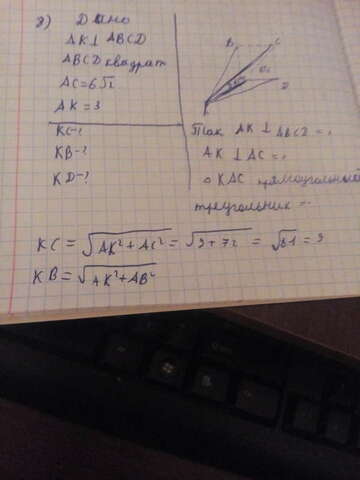 3) Дано
AK ⊥ ABCD
ABCD квадрат
AC = 6√2
AK = 3
KC-?
KB-?
KD-?
B
C
D
K
Так AK ⊥ ABCD =>
AK ⊥ AC =>
△ KAC прямоугольный
треугольник =>
KC = √AK² + AC² = √9 + 72 = √81 = 9
KB = √AK² + AB²